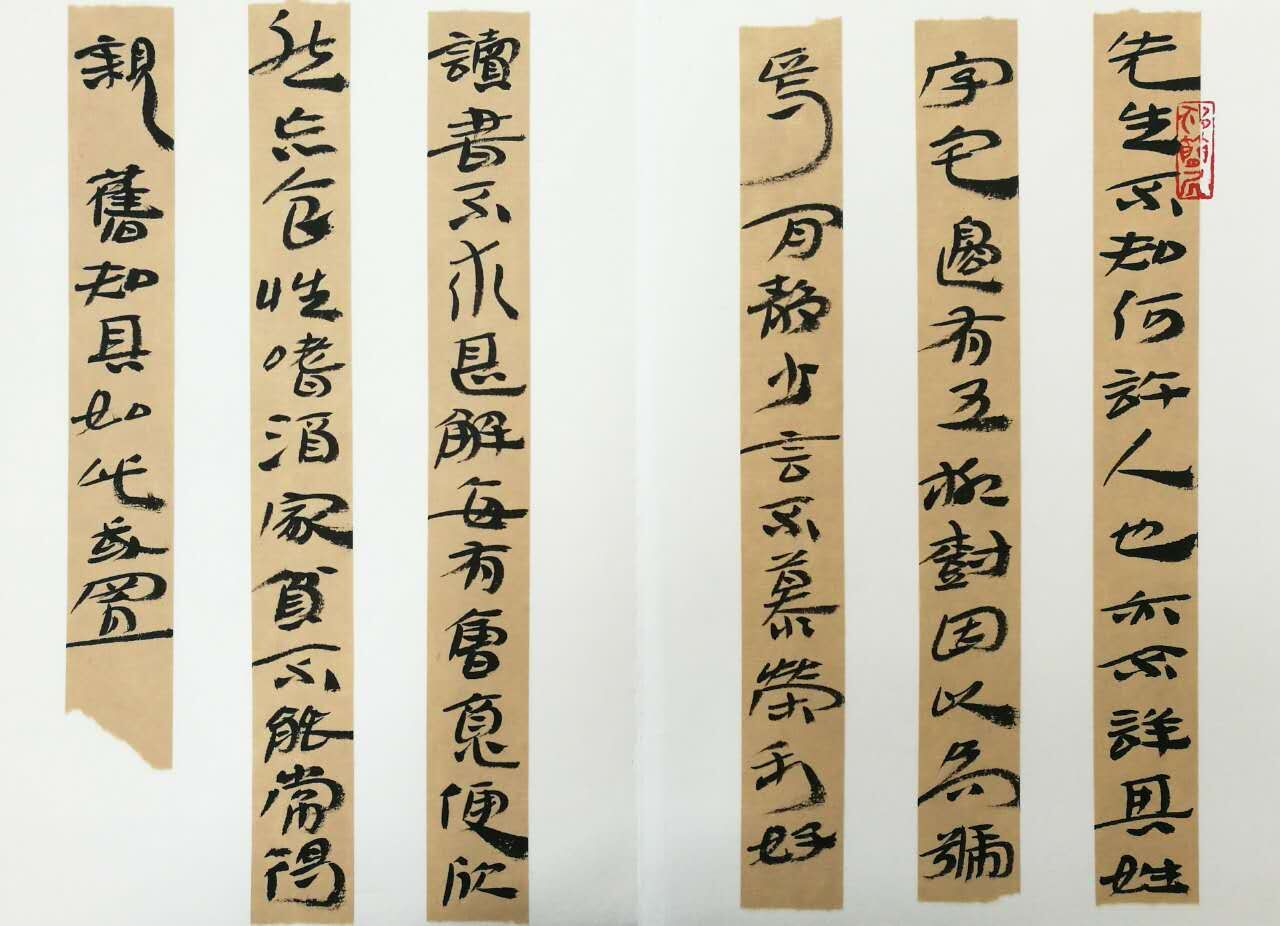 先生不知何許人也亦不詳其姓
字宅邊有五柳樹因以為號
焉閒靜少言不慕榮利好
讀書不求甚解每有會意便欣
然忘食性嗜酒家貧不能常得
親舊知其如此或置